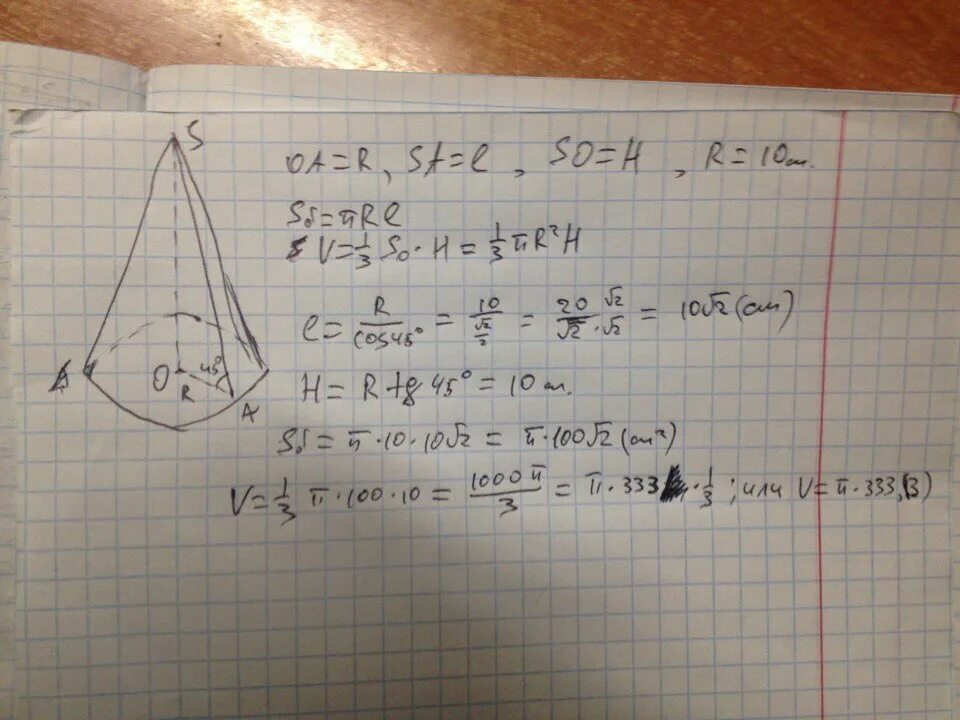 S
OA = R, SA = l, SO = H, R = 10 см.
Sб = πRl
V = 1/3 S₀ · H = 1/3 πR²H
l = R/cos45° = 10/(√2/2) = 20/√2 · √2/√2 = 10√2 (см)
O 45°
R
A
H = R tg 45° = 10 см.
Sб = π · 10 · 10√2 = π · 100√2 (см²)
V = 1/3 π · 100 · 10 = 1000π/3 = π · 333 · 1/3 ; или V = π · 333,(3)